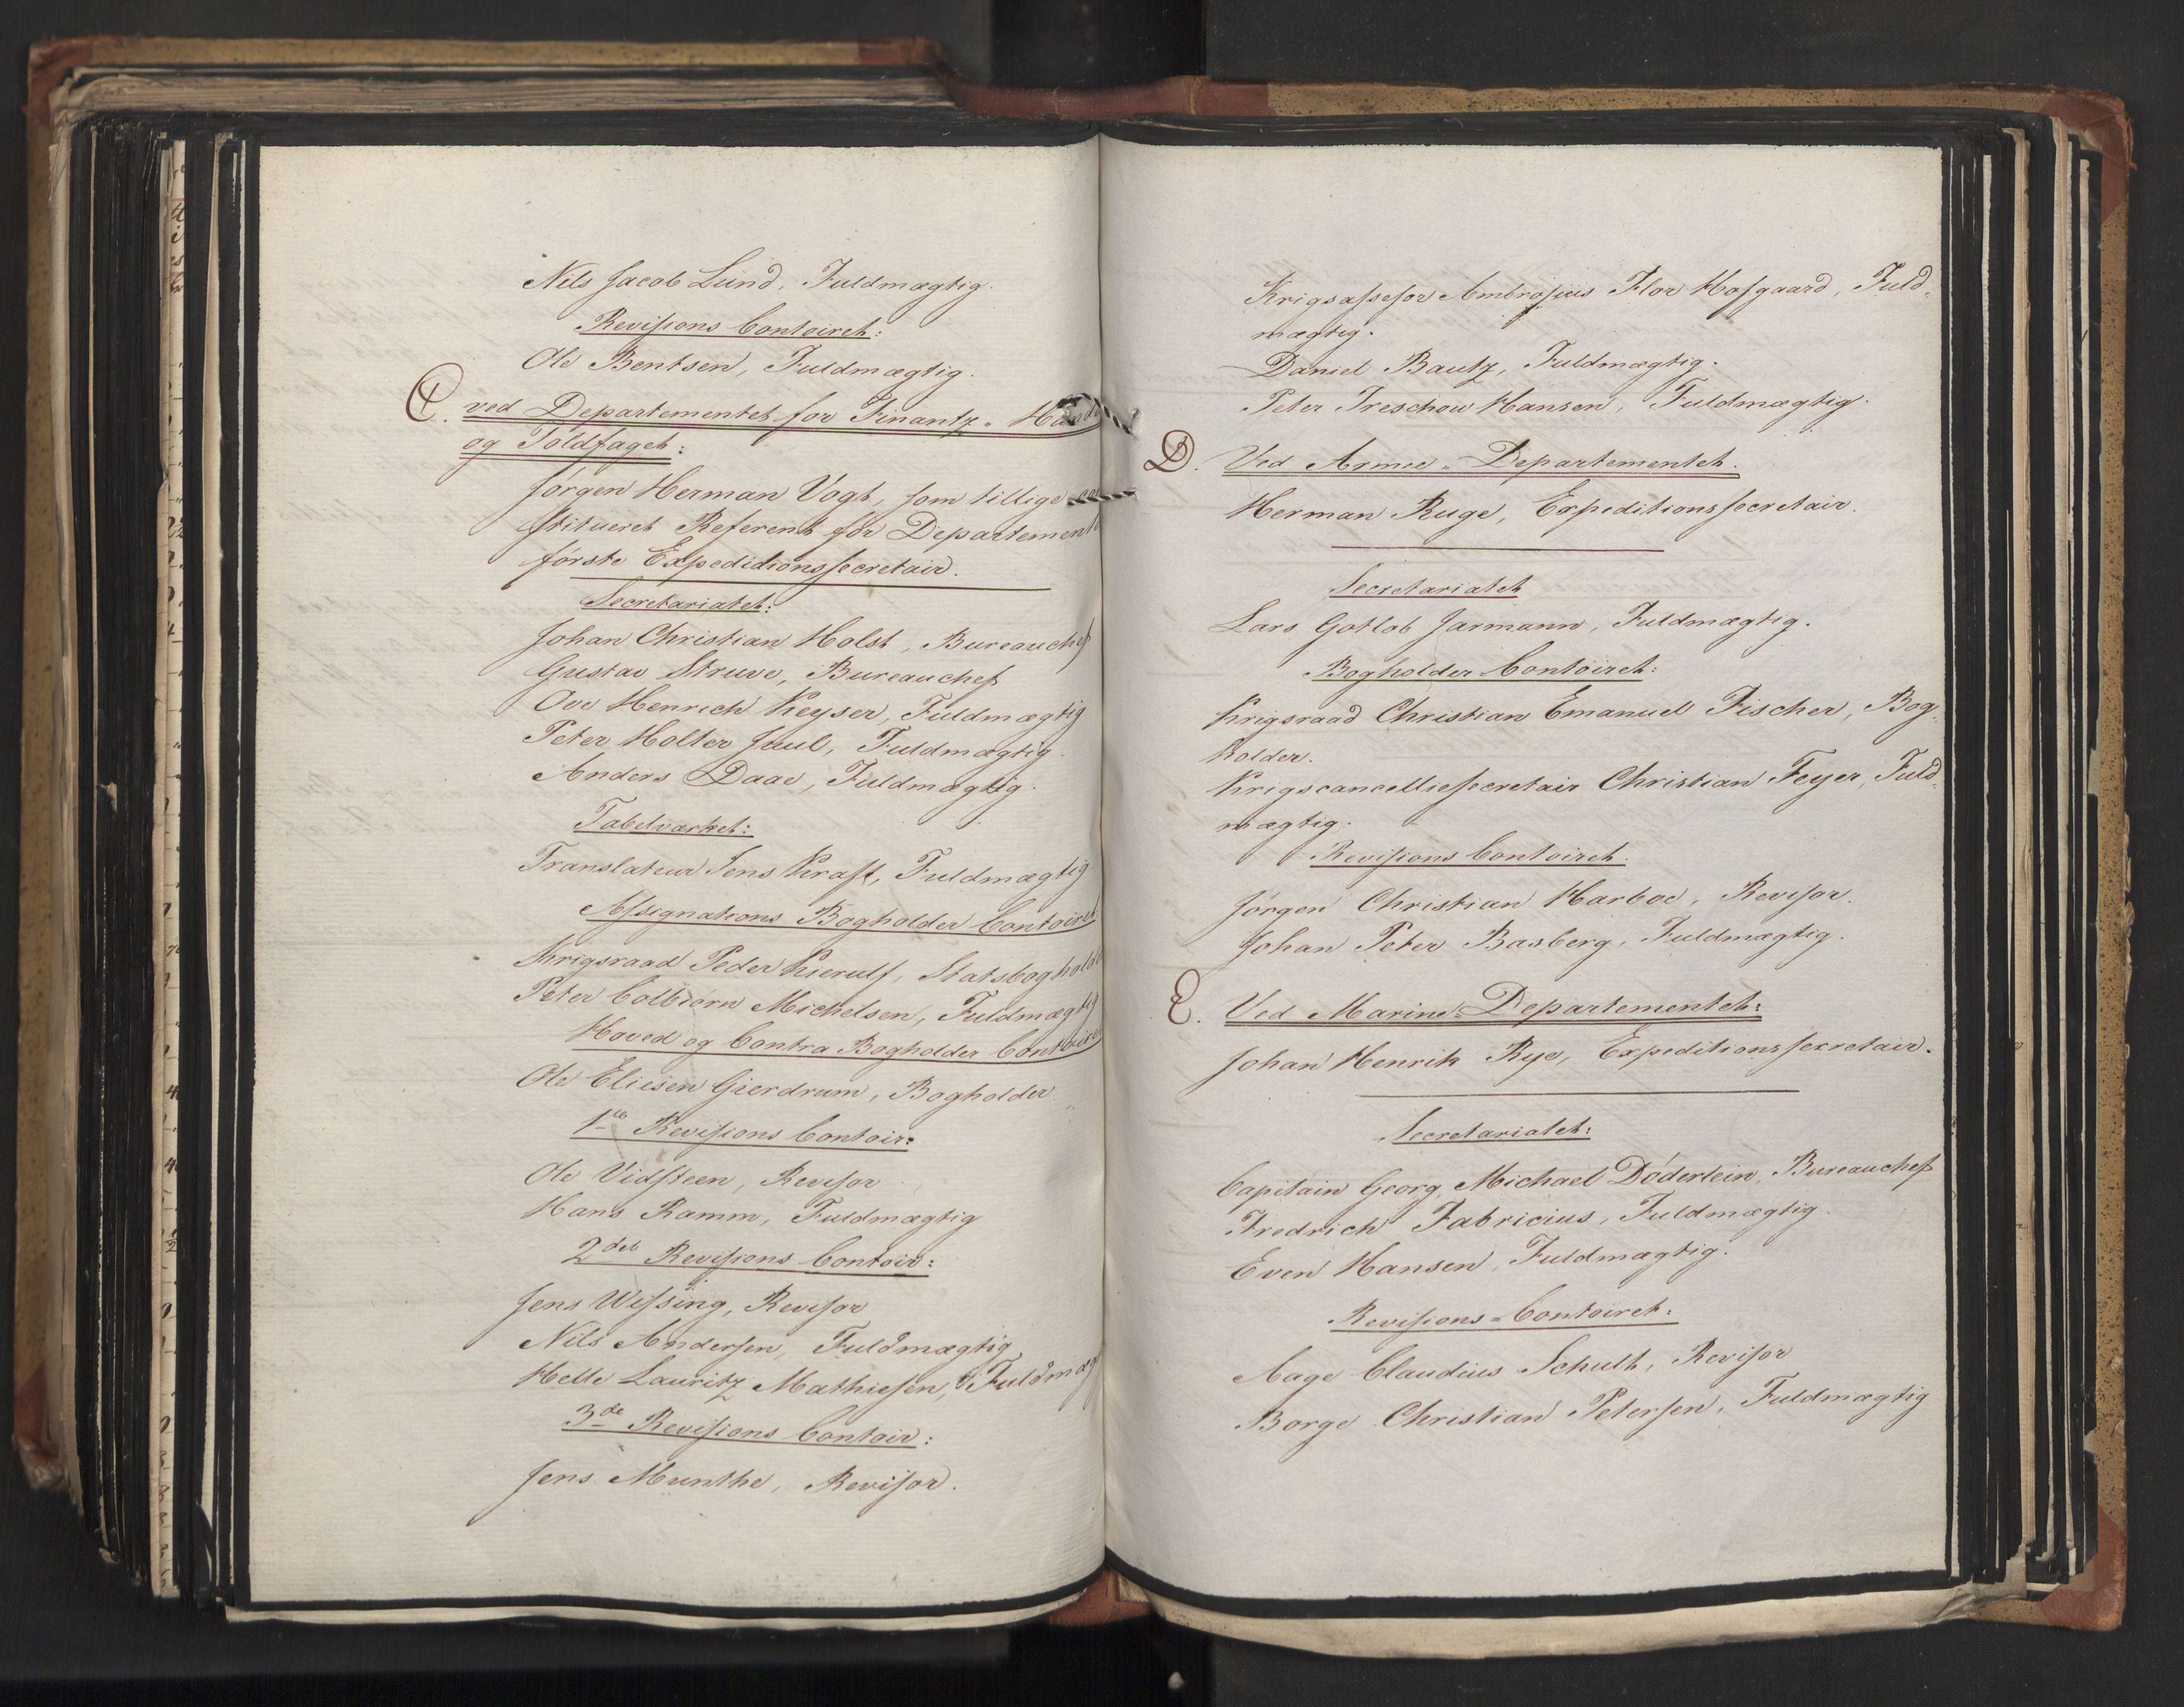 Nils Jacob Lund, Fuldmægtig.
Revisions Contoiret:
Ole Bentsen, Fuldmægtig.
C. ved Departementet for Finantz- Hande
og Toldfaget:
Jørgen Herman Vogt, som tillige con
stitueret Referent for Departemente
første Expeditionssecretair.
Secretariatet:
Johan Christian Holst, Bureauchef
Gustav Struve, Bureauchef
Ove Henrich Keyser, Fuldmægtig
Peter Holter Juul, Fuldmægtig.
Anders Daae, Fuldmægtig.
Tabelværket:
Translateur Jens Kraft, Fuldmægtig
Assignations Bogholder Contoiret
Krigsraad Peder Kierulf, Statsbogholde
Peter Colbiørn Michelsen, Fuldmægtig
Hoved og Contra Bogholder Contoire
Ole Eliesen Gierdrum, Bogholder.
1ste Revisions Contoir:
Ole Vidsteen, Revisor
Hans Ramm, Fuldmægtig
2det Revisions Contoir:
Jens Wissing, Revisor
Nils Andersen, Fuldmægtig
Helle Lauritz Mathiesen, Fuldmæg
3de Revisions Contoir:
Jens Munthe, Revisor.
Krigsassesor Ambrosius Flor Hofgaard, Fuld-
mægtig.
Daniel Bautz, Fuldmægtig.
Peter Treschow Hansen, Fuldmægtig.
D. Ved Armee-Departementet.
Herman Ruge, Expeditionssecretair.
Secretariatet
Lars Gotlob Jarmann, Fuldmægtig.
Bogholder-Contoiret:
Krigsraad Christian Emanuel Fischer, Bog-
holder.
Krigscancelliesecretair Christian Feyer, Fuld-
mægtig.
Revisions Contoiret.
Jørgen Christian Harboe, Revisor.
Johan Peter Basberg, Fuldmægtig.
E. Ved Marine-Departementet:
Johan Henrik Rye, Expeditionssecretair.
Secretariatet:
Capitain Georg Michael Døderlein, Bureauchef
Fredrich Fabricius, Fuldmægtig.
Even Hansen, Fuldmægtig.
Revisions-Contoiret:
Aage Claudius Schult, Revisor
Borge Christian Petersen, Fuldmægtig